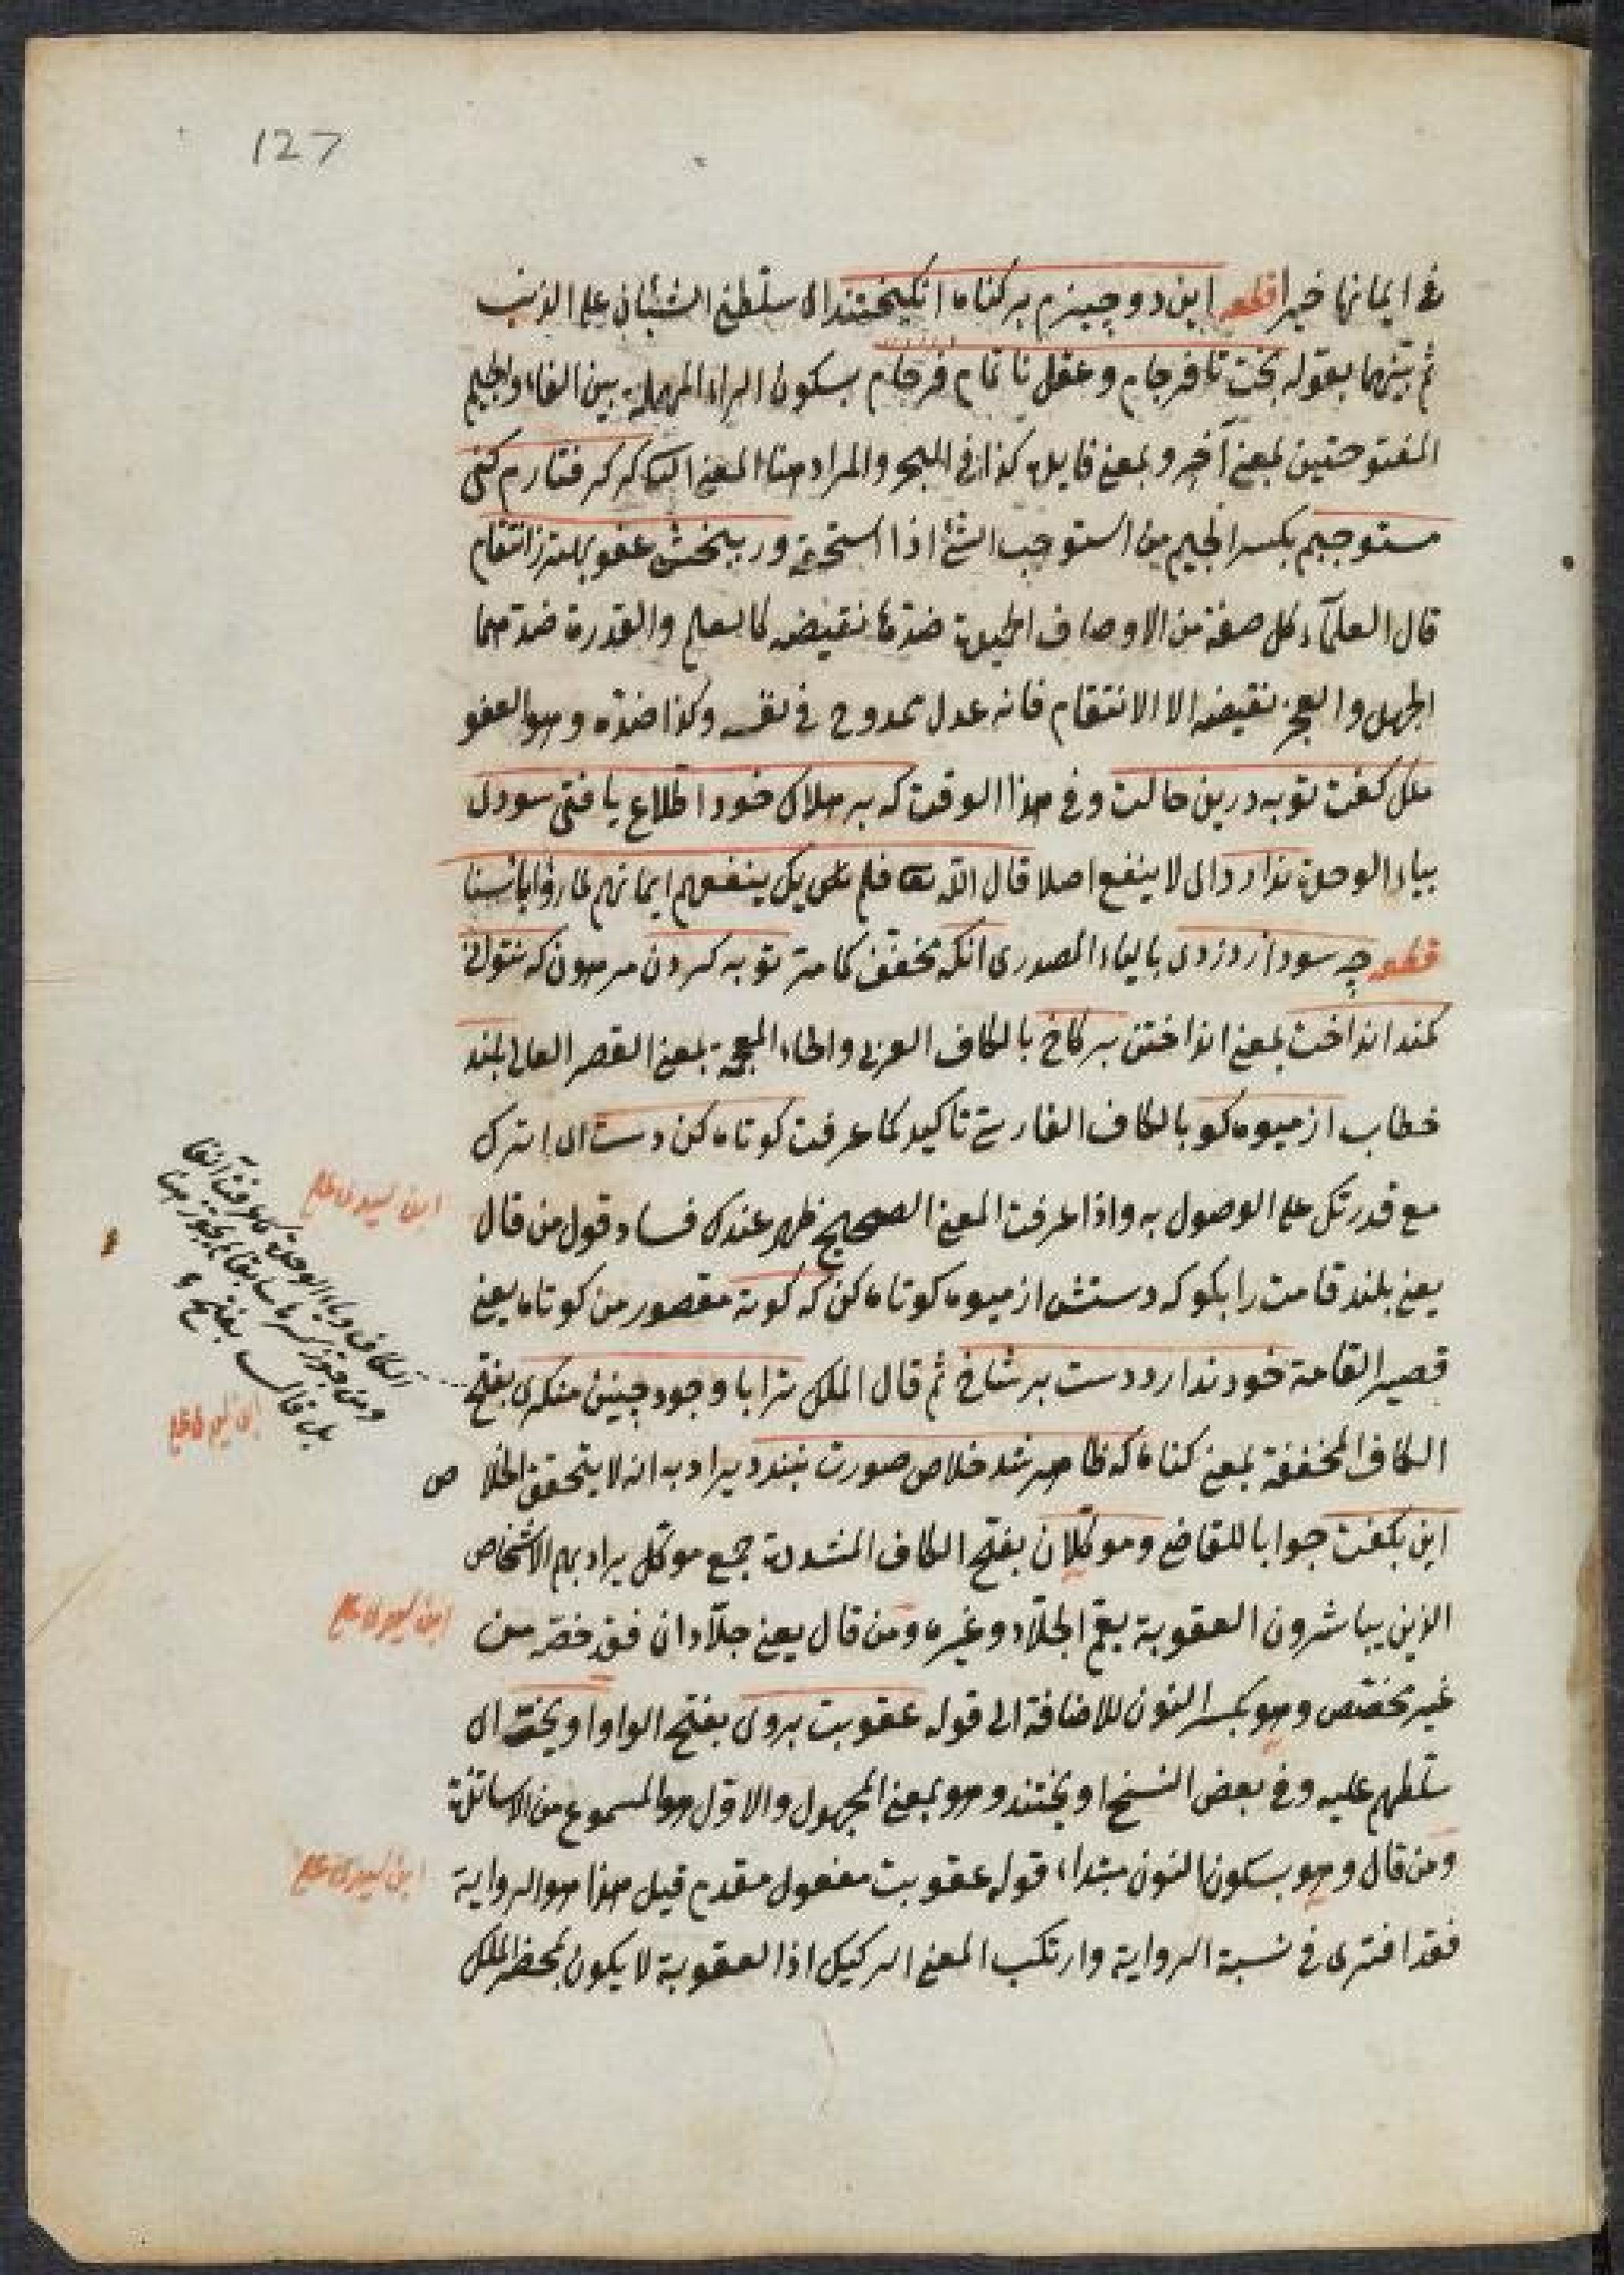 127
في ايمانها خيرا قطعه اين دو چيزم بر كناه انكيختند اى سلطنى الشيئان على الذنب
ثم بيّنهما بقوله بخت نافرجام وعقل ناتمام فرجام بسكون الراء المهملة بين الفاء والجيم
المفتوحتين بمعنى آخر وبمعنى فايدة كذا فى البحر والمراد هنا المعنى الثانى كر كرفتارم كنى
مستوجبم بكسر الجيم من استوجب الشئ اذا استحقه ور ببخشى عفو بهتر ز انتقام
قال العلمآء كل صفة من الاوصاف الجميلة ضدها نقيضه كالعلم والقدرة ضدهما
الجهل والعجز نقيضه الا الانتقام فانه عدل ممدوح فى نفسه وكذا ضده وهو العفو
ملك كفت توبه درين حالت وفى هذا الوقت كه بر هلاك خود اطلاع يافتى سودى
بياء الوحدة ندارد اى لا ينفع اصلا قال الله تعا فلم يك ينفعهم ايمانهم لما رأوا بأسنا
قطعه چه سود از دزدى بالياء المصدرى انكه مخفف كامر توبه كردن مرهون كه نتوانى
كمند انداخت بمعنى انداختن بر كاخ بالكاف العربى والخاء المعجمة بمعنى القصر العالى بلند
خطاب از ميوه كو بالكاف الفارسى تأكيد كما عرفت كوتاه كن دست اى اترك
مع قدرتك على الوصول به واذا عرفت المعنى الصحيح ظهر عندك فساد قول من قال
يعنى بلند قامت را بكو كه دستش از ميوه كوتاه كن كه كوته مقصور من كوتاه يعنى
قصير القامة خود ندارد دست بر شاخ ثم قال الملك ترا با وجود چنين منكرى بفتح
الكاف المخففة بمعنى كناه كه ظاهر شد خلاص صورت نبندد يراد به انه لا يتحقق الخلاص
اين بكفت جوابا للقاضى وموكلان بفتح الكاف المشددة جمع موكل يراد بهم الاشخاص
الذين يباشرون العقوبة يعم الجلّاد وغيره ومن قال يعنى جلّادان فقد خصّه من
غير مخصّص وهو بكسر النون للاضافة الى قوله عقوبت بروى بفتح الواو اويخته اى
سلطهم عليه وفى بعض النسخ اويختند وهو بمعنى المجهول والاول هو المسموع من الاساتذة
ومن قال وهو بسكون النون مبتدا، قوله عقوبت مفعول مقدم قيل هذا هو الرواية
فقد افترى فى نسبة الرواية وارتكب المعنى الركيك اذ العقوبة لا يكون بمحضر الملك
الكاف وياء الوحدة كما عرفت آنفا
ومن جوّز كسرها سابقا لم يجوّز هنا
بل قال بفتح